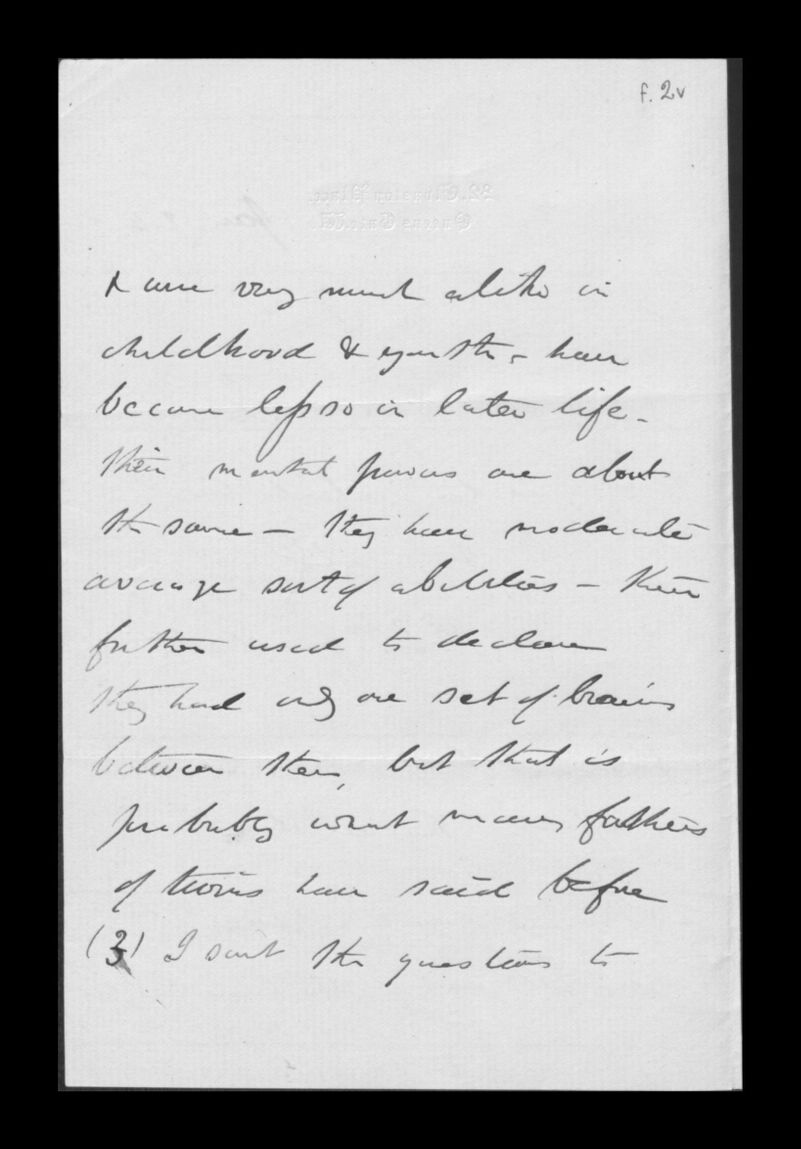 f. 2v
22. Elvaston Place.
Queens Gate. W.
& were very much alike in
childhood & youth - have
become less so in later life -
their mental powers are about
the same - they have moderate
average sort of abilities - their
father used to declare
they had only one set of brains
between them, but that is
probably what many fathers
of twins have said before
(3) I sent the questions to